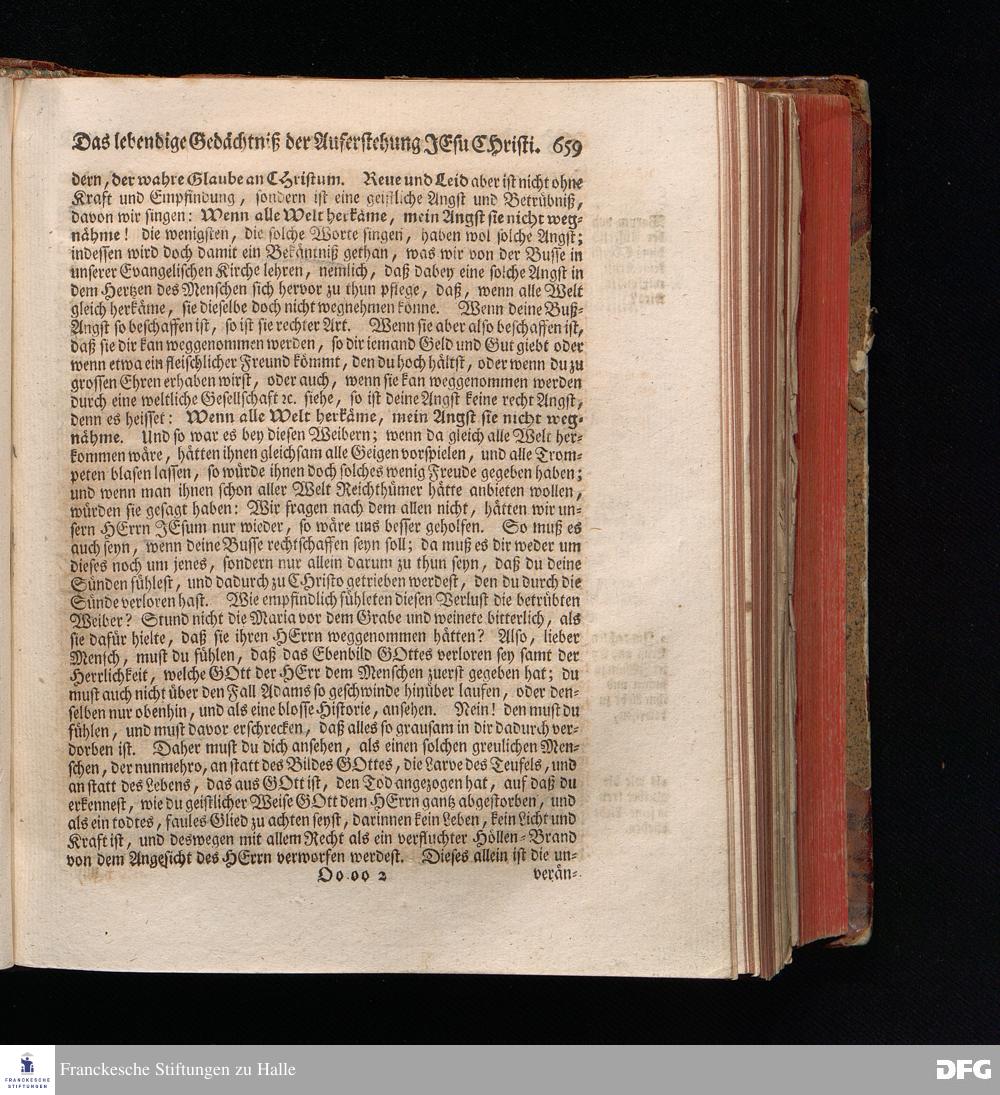 Das lebendige Gedächtniß der Auferstehung JEsu CHristi. 659
dern, der wahre Glaube an CHristum. Reue und Leid aber ist nicht ohne
Kraft und Empfindung, sondern ist eine geistliche Angst und Betrübniß,
davon wir singen: Wenn alle Welt herkäme, mein Angst sie nicht weg-
nähme! die wenigsten, die solche Worte singen, haben wol solche Angst;
indessen wird doch damit ein Bekäntniß gethan, was wir von der Busse in
unserer Evangelischen Kirche lehren, nemlich, daß dabey eine solche Angst in
dem Hertzen des Menschen sich hervor zu thun pflege, daß, wenn alle Welt
gleich herkäme, sie dieselbe doch nicht wegnehmen könne. Wenn deine Buß-
Angst so beschaffen ist, so ist sie rechter Art. Wenn sie aber also beschaffen ist,
daß sie dir kan weggenommen werden, so dir iemand Geld und Gut giebt oder
wenn etwa ein fleischlicher Freund kömmt, den du hoch hältst, oder wenn du zu
grossen Ehren erhaben wirst, oder auch, wenn sie kan weggenommen werden
durch eine weltliche Gesellschaft ꝛc. siehe, so ist deine Angst keine recht Angst,
denn es heisset: Wenn alle Welt herkäme, mein Angst sie nicht weg-
nähme. Und so war es bey diesen Weibern; wenn da gleich alle Welt her-
kommen wäre, hätten ihnen gleichsam alle Geigen vorspielen, und alle Trom-
peten blasen lassen, so würde ihnen doch solches wenig Freude gegeben haben;
und wenn man ihnen schon aller Welt Reichthümer hätte anbieten wollen,
würden sie gesagt haben: Wir fragen nach dem allen nicht, hätten wir un-
sern HErrn JEsum nur wieder, so wäre uns besser geholfen. So muß es
auch seyn, wenn deine Busse rechtschaffen seyn soll; da muß es dir weder um
dieses noch um jenes, sondern nur allein darum zu thun seyn, daß du deine
Sünden fühlest, und dadurch zu CHristo getrieben werdest, den du durch die
Sünde verloren hast. Wie empfindlich fühleten diesen Verlust die betrübten
Weiber? Stund nicht die Maria vor dem Grabe und weinete bitterlich, als
sie dafür hielte, daß sie ihren HErrn weggenommen hätten? Also, lieber
Mensch, must du fühlen, daß das Ebenbild GOttes verloren sey samt der
Herrlichkeit, welche GOtt der HErr dem Menschen zuerst gegeben hat; du
must auch nicht über den Fall Adams so geschwinde hinüber laufen, oder den-
selben nur obenhin, und als eine blosse Historie, ansehen. Nein! den must du
fühlen, und must davor erschrecken, daß alles so grausam in dir dadurch ver-
dorben ist. Daher must du dich ansehen, als einen solchen greulichen Men-
schen, der nunmehro, an statt des Bildes GOttes, die Larve des Teufels, und
an statt des Lebens, das aus GOtt ist, den Tod angezogen hat, auf daß du
erkennest, wie du geistlicher Weise GOtt dem HErrn gantz abgestorben, und
als ein todtes, faules Glied zu achten seyst, darinnen kein Leben, kein Licht und
Kraft ist, und deswegen mit allem Recht als ein verfluchter Höllen-Brand
von dem Angesicht des HErrn verworfen werdest. Dieses allein ist die un-
Oo oo 2 verän-
FRANCKESCHE
STIFTUNGEN
Franckesche Stiftungen zu Halle
DFG